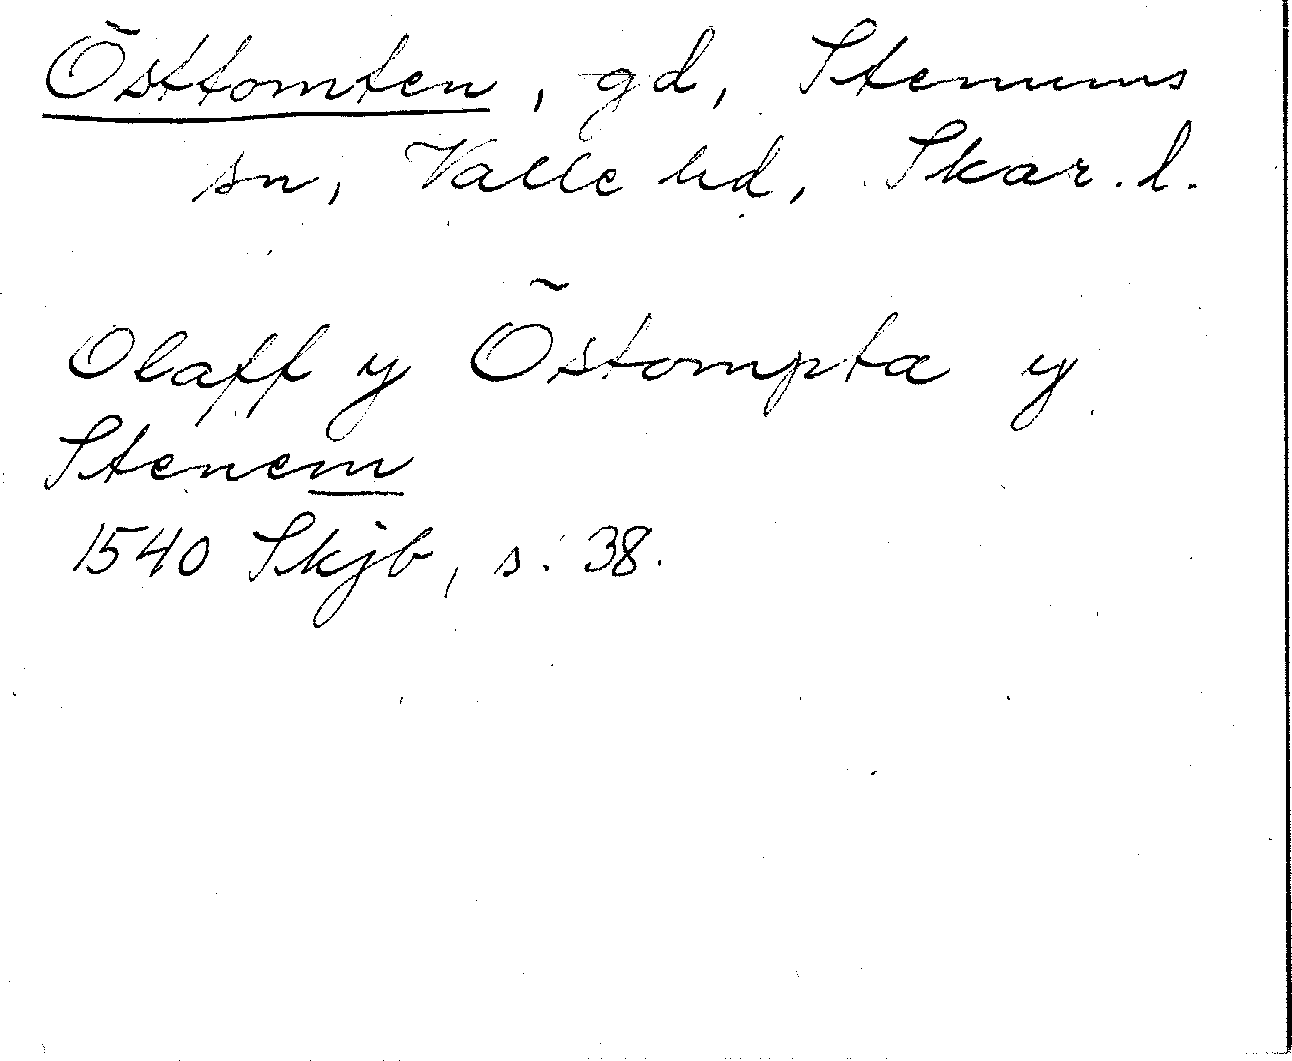 Östtomten, gd, Stenums
sn, Valle hd, Skar. l.
Olaff y Östompta y
Stenem
1540 Skjb, s. 38.